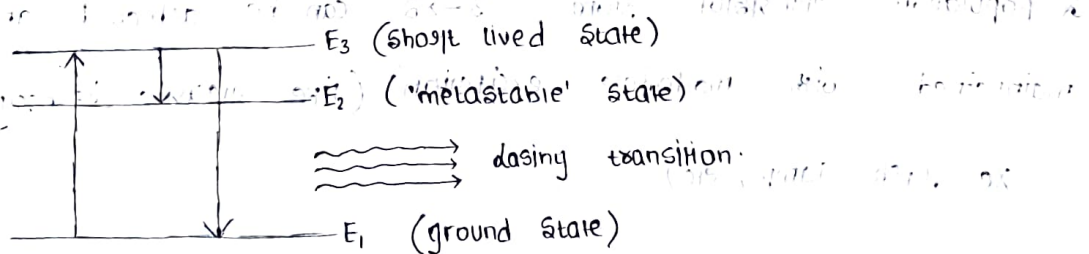 E₃ (Short lived State)
E₂ ('metastable' state)
lasing transition.
E₁ (ground State)